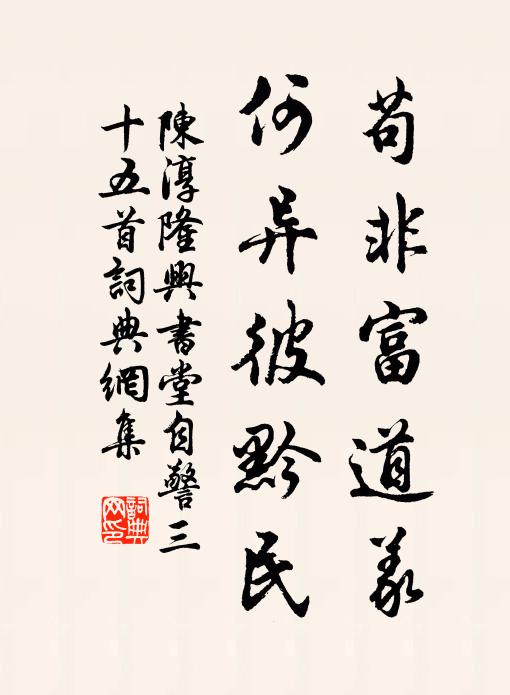 苟非富道義
何异彼黔民
陳淳隆興書堂自警三
十五首詞典網集
詞典网印